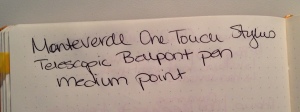 Monteverde One Touch Stylus
Telescopic Ballpoint pen
medium point